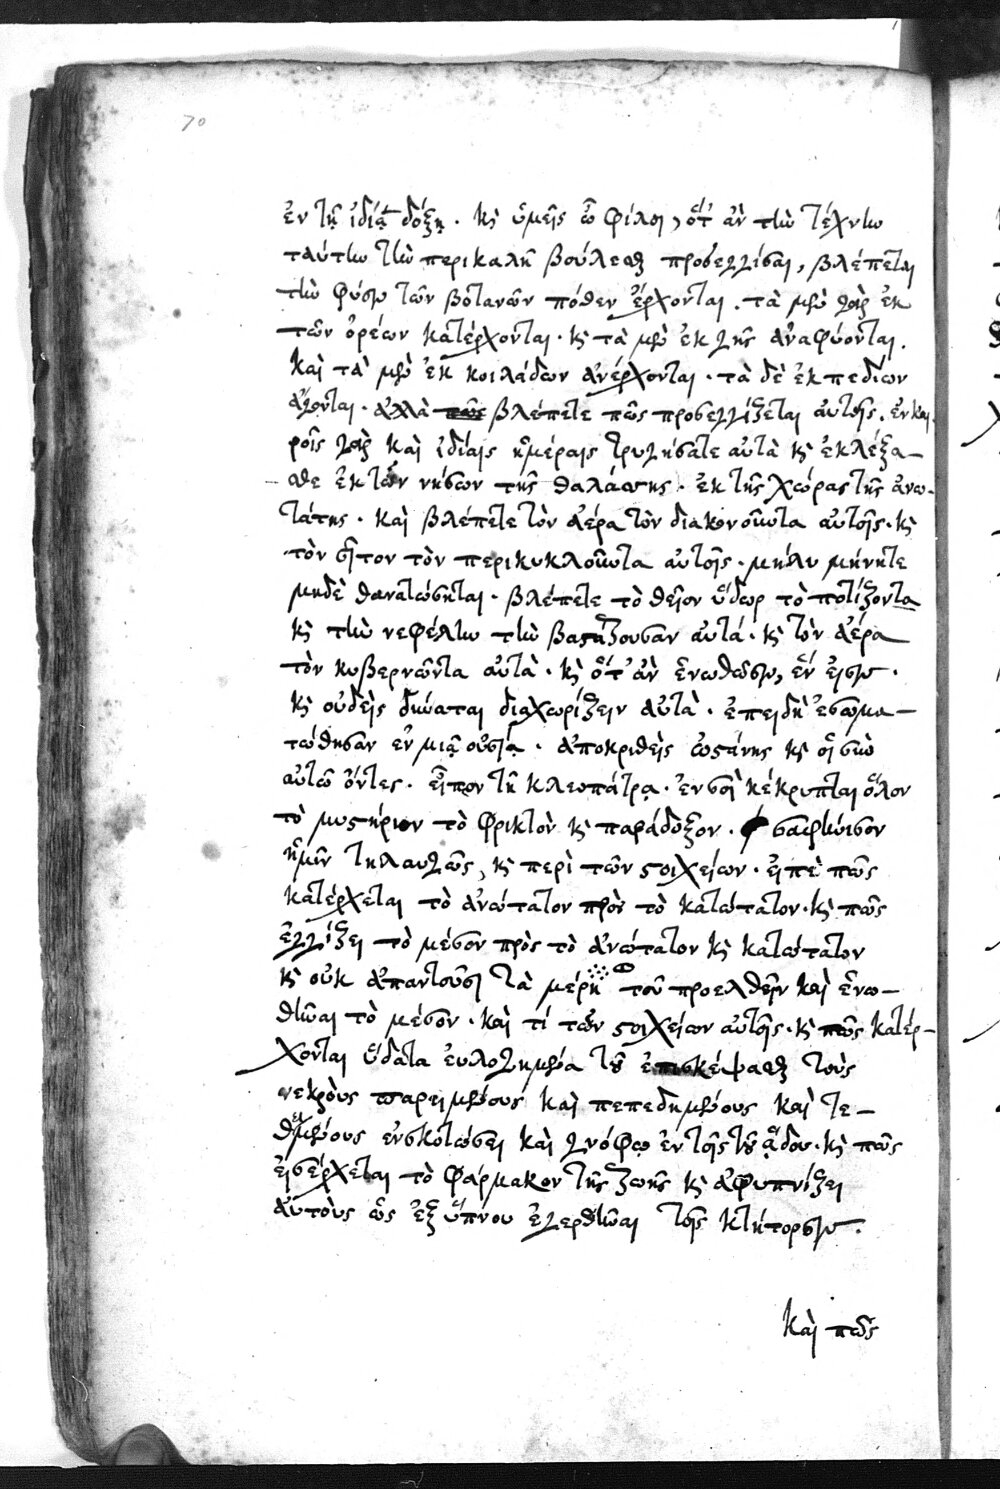 70
ἐν τῇ ἰδίᾳ δόξῃ. κὶ ὑμεῖς ὦ φίλοι, ὅτ' ἂν τὴν τέχνην
ταύτην τὴν περικαλῆ βούλεσθαι προσεγγίσαι, βλέπεται
τὴν φύσιν τῶν βοτανῶν πόθεν ἔρχονται. τὰ μὲν γὰρ ἐκ
τῶν ὀρέων κατέρχονται. κὶ τὰ μὲν ἐκ γῆς ἀναφύονται.
καὶ τὰ μὲν ἐκ κοιλάδων ἀνέρχονται. τὰ δὲ ἐκ πεδίων
ἄγονται. ἀλλὰ βλέπετε πῶς προσεγγίζεται αὐτοῖς. ἐν και
ροῖς γὰρ καὶ ἰδίαις ἡμέραις τρυγήσατε αὐτὰ κὶ ἐκλέξα-
σθε ἐκ τῶν νήσων τῆς θαλάσσης. ἐκ τῆς χώρας τῆς ἀνω-
τάτης. καὶ βλέπετε τὸν ἀέρα τὸν διακονοῦντα αὐτοῖς. κὶ
τὸν σῖτον τὸν περικυκλοῦντα αὐτοῖς. μηλυ μήνητε
μηδὲ θανατώσηται. βλέπετε τὸ θεῖον ὕδωρ τὸ ποτίζοντα
κὶ τὴν νεφέλην τὴν βαστάζουσαν αὐτά. κὶ τὸν ἀέρα
τὸν κυβερνῶντα αὐτὰ. κὶ ὅτ' ἂν ἑνωθῶσιν, ἕν εἰσιν.
κὶ οὐδεὶς δύναται διαχωρίζειν αὐτὰ. ἐπειδὴ ἐσωμα-
τώθησαν ἐν μιᾷ οὐσίᾳ. ἀποκριθεὶς ὠστάνης κὶ οἱ σὺν
αὐτῶ ὄντες. εἶπον τῇ κλεοπάτρᾳ. ἐν σοὶ κέκρυπται ὅλον
τὸ μυστήριον τὸ φρικτὸν κὶ παράδοξον. σαφήνισον
ἡμῖν τηλαυγῶς, κὶ περὶ τῶν στοιχείων. εἰπὲ πῶς
κατέρχεται τὸ ἀνώτατον πρὸς τὸ κατώτατον. κὶ πῶς
ἐγγίζει τὸ μέσον πρὸς τὸ ἀνώτατον κὶ κατώτατον
κὶ οὐκ ἀπαντοῦσι τὰ μέρη τοῦ προελθεῖν καὶ ἑνω-
θῆναι τὸ μέσον. καὶ τί τῶν στοιχείων αὐτοῖς. κὶ πῶς κατέρ-
χονται ὕδατα εὐλογημένα τοῦ ἐπισκέψασθαι τοὺς
νεκροὺς παρειμένους καὶ πεπεδημένους καὶ τε-
θλιμμένους ἐν σκοτώσει καὶ γνόφῳ ἐντὸς τοῦ ᾅδου. κὶ πῶς
εἰσέρχεται τὸ φάρμακον τῆς ζωῆς κὶ ἀφυπνίζει
αὐτοὺς ὡς ἐξ ὕπνου ἐγερθῆναι τοῖς κτήτορσιν.
καὶ πῶς